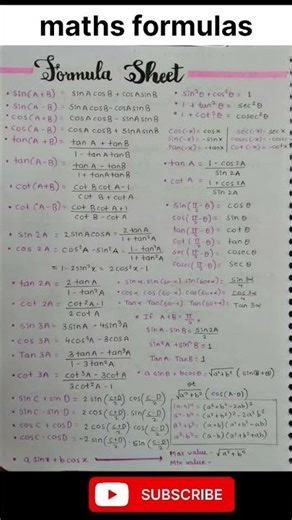 maths formulas
Formula Sheet
• sin(A+B) = sinA cosB + cosA sinB
• sin(A-B) = sinA cosB - cosA sinB
• cos(A+B) = cosA cosB - sinA sinB
• cos(A-B) = cosA cosB + sinA sinB
• tan(A+B) = tanA + tanB / 1 - tanA tanB
• tan(A-B) = tanA - tanB / 1 + tanA tanB
• cot(A+B) = cotB cotA - 1 / cotB + cotA
• cot(A-B) = cotB cotA + 1 / cotB - cotA
• sin 2A = 2 sinA cosA = 2tanA / 1 + tan²A
• cos 2A = cos²A - sin²A = 1 - tan²A / 1 + tan²A
= 1 - 2sin²x = 2cos²x - 1
• tan 2A = 2 tanA / 1 - tan²A
• cot 2A = cot²A - 1 / 2 cotA
• sin 3A = 3sinA - 4sin³A
• cos 3A = 4cos³A - 3cosA
• Tan 3A = 3tanA - tan³A / 1 - 3tan²A
• cot 3A = cot³A - 3cotA / 3cot²A - 1
• sinC + sinD = 2 sin(C+D/2) cos(C-D/2)
• sinC - sinD = 2 cos(C+D/2) sin(C-D/2)
• cosC + cosD = 2 cos(C+D/2) cos(C-D/2)
• cosC - cosD = -2 sin(C+D/2) · sin(C-D/2)
• a sinx + b cosx
• sin²θ + cos²θ = 1
* 1 + tan²θ = sec²θ
* 1 + cot²θ = cosec²θ
cos(-x) = cosx
sin(-x) = -sinx
tan(-x) = -tanx
sec(-x) = secx
• tanA = 1 - cos2A / sin 2A
• cotA = 1 + cos2A / sin 2A
= cosθ
= sinθ
= cotθ
= tanθ
= secθ
• If A+B =
sinA · sinB = sin2A / 2
sin²A + sin²B = 1
TanA TanB = 1
• a sinθ + b cosθ = √a²+b²
or
√a²+b²
Max value = √a²+b²
SUBSCRIBE